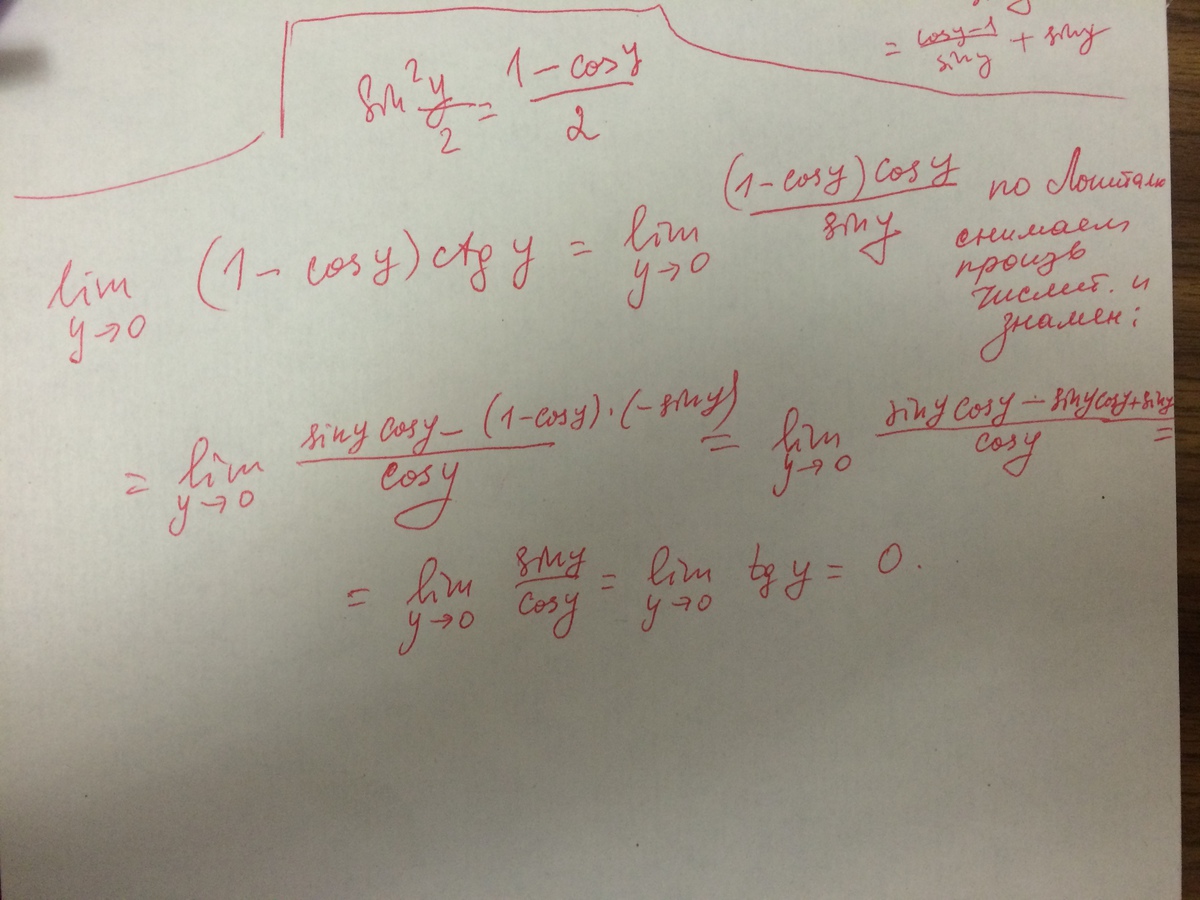 = cosy-1/siny + siny
sin² y/2 = 1-cosy/2
lim y→0 (1-cosy) ctg y = lim y→0 (1-cosy)cosy/siny по Лопиталю
снимаем
произв
числит. и
знамен:
= lim y→0 siny cosy - (1-cosy)·(-siny)/cosy = lim y→0 siny cosy - sinycosy+siny/cosy =
= lim y→0 siny/cosy = lim y→0 tg y = 0.